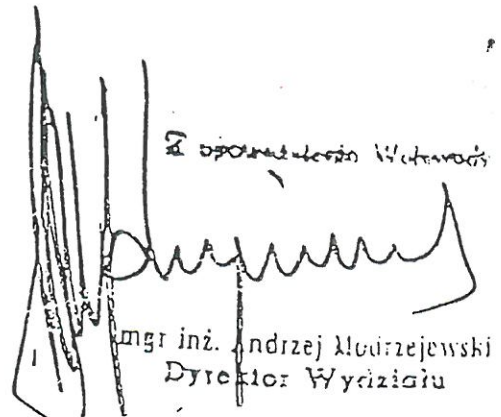 Z upoważnienia Wojewody
mgr inż. Andrzej Modrzejewski
Dyrektor Wydziału